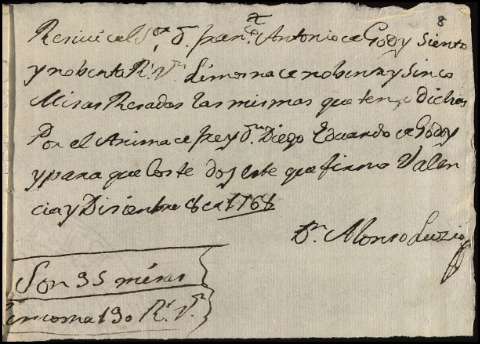 8
Reciuí del Sr. Dn. Franco. Antonio de Godoy Siento
y nobenta Rs. Vn. Limosna de nobenta y sinco
Misas Resadas las mismas que tengo dichas
Por el Anima de frey Dn. Diego Eduardo de Godoy
y para que Coste doy este que firmo Valen
cia y Disiembre 8 de 1768
Dn. Alonso
Son 95 misas
inconna 190 Rs. Vn.